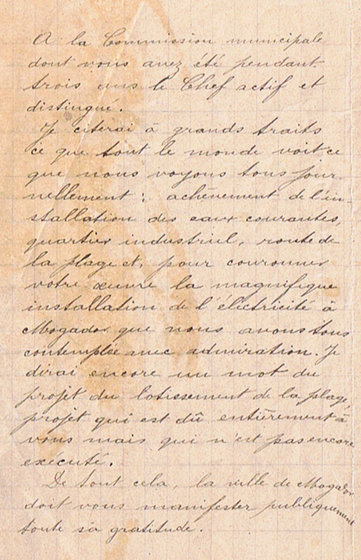 A la Commission municipale
dont vous avez été pendant
trois ans le Chef actif et
distingué.
Je citerai à grands traits
ce que tout le monde voit ce
que nous voyons tous jour
nellement : achèvement de l'in-
stallation des eaux courantes,
quartier industriel, route de
la plage et, pour couronner
votre œuvre la magnifique
installation de l'électricité à
Mogador que nous avons tous
contemplée avec admiration. Je
dirai encore un mot du
projet du lotissement de la plage,
projet qui est dû entièrement à
vous mais qui n'est pas encore
exécuté.
De tout cela, la ville de Mogador
doit vous manifester publiquement
toute sa gratitude.